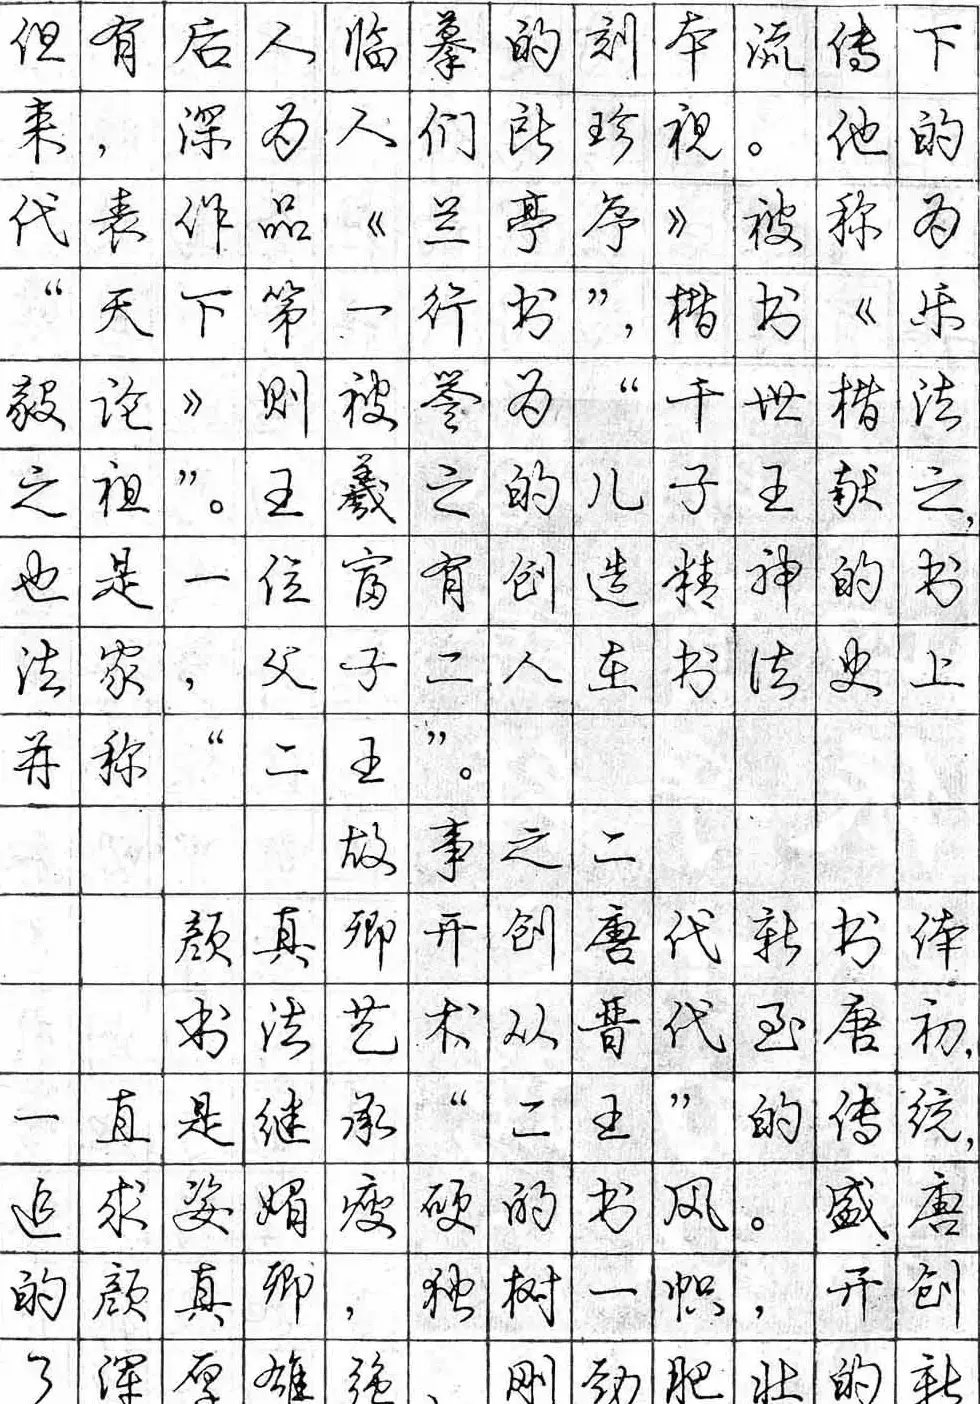 但有后人临摹的刻本流传下
来，深为人们所珍视。他的
代表作品《兰亭序》被称为
“天下第一行书”，楷书《乐
毅论》则被誉为“千世楷法
之祖”。王羲之的儿子王献之，
也是一位富有创造精神的书
法家，父子二人在书法史上
并称“二王”。
故事之二
颜真卿开创唐代新书体
书法艺术从晋代至唐初，
一直是继承“二王”的传统，
追求姿媚瘦硬的书风。盛唐
的颜真卿，独树一帜，开创
了浑厚雄强、刚劲肥壮的新